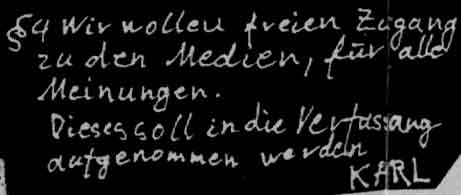 §4 Wir wollen freien Zugang
zu den Medien, für alle
Meinungen.
Dieses soll in die Verfassung
aufgenommen werden
KARL